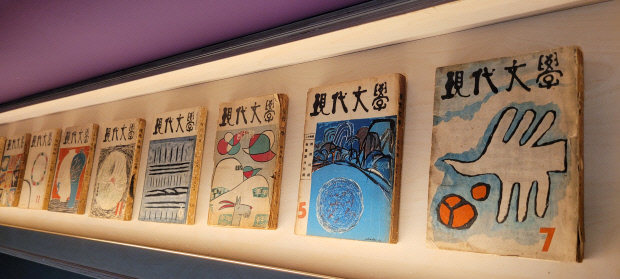 現代文學
現代文學
現代文學
現代文學
11
現代文學
現代文學
現代文學
5
現代文學
7